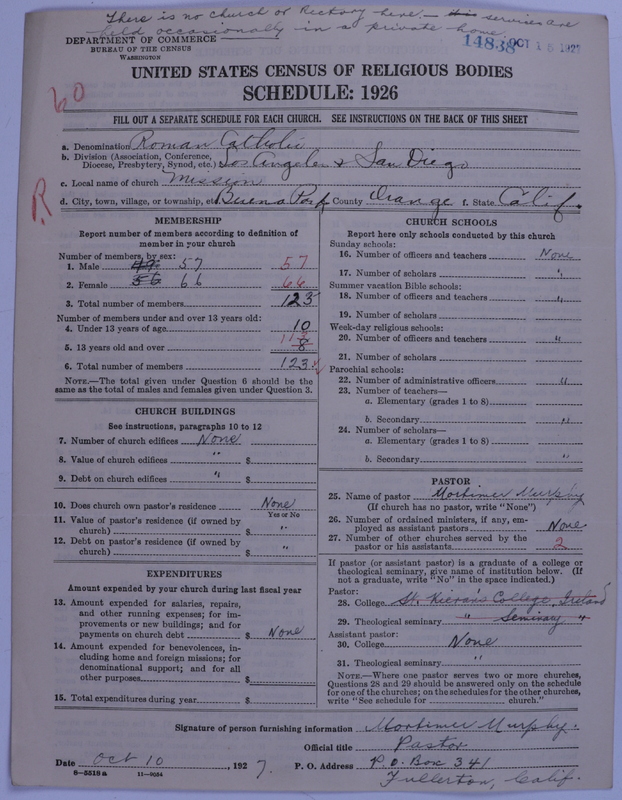 There is no church or Rectory here — this services are
held occasionally in a private home.
14838 OCT 15 1927
DEPARTMENT OF COMMERCE
BUREAU OF THE CENSUS
WASHINGTON
UNITED STATES CENSUS OF RELIGIOUS BODIES
SCHEDULE: 1926
60
FILL OUT A SEPARATE SCHEDULE FOR EACH CHURCH. SEE INSTRUCTIONS ON THE BACK OF THIS SHEET
a. Denomination Roman Catholic
b. Division (Association, Conference,
Diocese, Presbytery, Synod, etc.) Los Angeles & San Diego
c. Local name of church Mission
R
d. City, town, village, or township, etc. Buena Park County Orange f. State Calif.
MEMBERSHIP
Report number of members according to definition of
member in your church
Number of members, by sex:
1. Male 49. 57 57
2. Female 56 66 66
3. Total number of members 123
Number of members under and over 13 years old:
4. Under 13 years of age 10
5. 13 years old and over 113
8
6. Total number of members 123
NOTE.—The total given under Question 6 should be the
same as the total of males and females given under Question 3.
CHURCH BUILDINGS
See instructions, paragraphs 10 to 12
7. Number of church edifices None
8. Value of church edifices " $
9. Debt on church edifices " $
10. Does church own pastor's residence None
Yes or No
11. Value of pastor's residence (if owned by
church) $ "
12. Debt on pastor's residence (if owned by
church) $ "
EXPENDITURES
Amount expended by your church during last fiscal year
13. Amount expended for salaries, repairs,
and other running expenses; for im-
provements or new buildings; and for
payments on church debt $ None
14. Amount expended for benevolences, in-
cluding home and foreign missions; for
denominational support; and for all
other purposes $
15. Total expenditures during year $
CHURCH SCHOOLS
Report here only schools conducted by this church
Sunday schools:
16. Number of officers and teachers None
17. Number of scholars "
Summer vacation Bible schools:
18. Number of officers and teachers "
19. Number of scholars
Week-day religious schools:
20. Number of officers and teachers "
21. Number of scholars
Parochial schools:
22. Number of administrative officers "
23. Number of teachers—
a. Elementary (grades 1 to 8)
b. Secondary "
24. Number of scholars—
a. Elementary (grades 1 to 8)
b. Secondary "
PASTOR
25. Name of pastor Mortimer Murphy
(If church has no pastor, write "None")
26. Number of ordained ministers, if any, em-
ployed as assistant pastors None
27. Number of other churches served by the
pastor or his assistants 2
If pastor (or assistant pastor) is a graduate of a college or
theological seminary, give name of institution below. (If
not a graduate, write "No" in the space indicated.)
Pastor:
28. College St. Kieran's College, Ireland
29. Theological seminary " Seminary "
Assistant pastor:
30. College None
31. Theological seminary "
NOTE.—Where one pastor serves two or more churches,
Questions 28 and 29 should be answered only on the schedule
for one of the churches; on the schedules for the other churches,
write "See schedule for church."
Signature of person furnishing information Mortimer Murphy.
Official title Pastor
Date Oct 10, 1927. P. O. Address P.O. Box 341
8-5518a 11-9034 Fullerton, Calif.